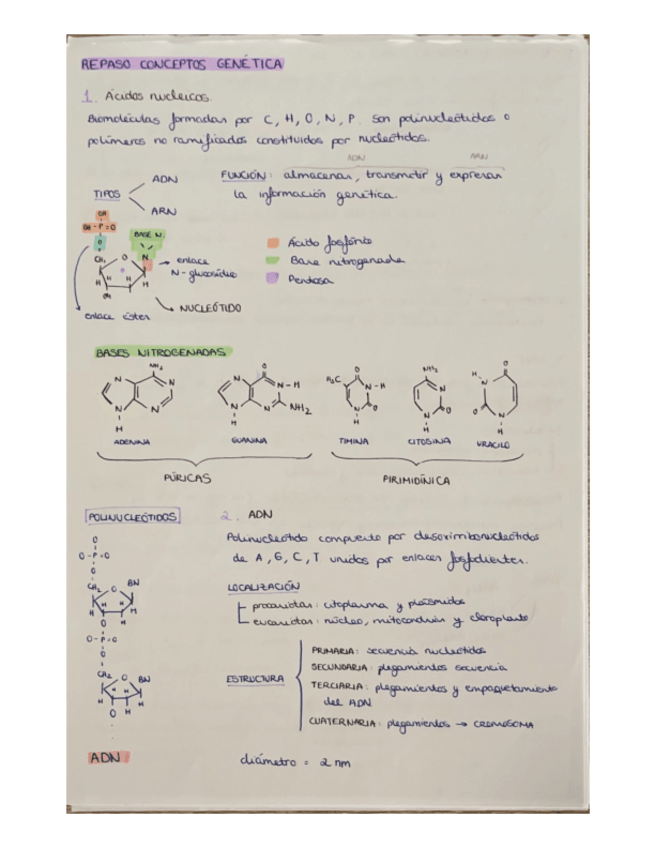 REPASO CONCEPTOS GENÉTICA
1. Ácidos nucleicos.
Biomoléculas formadas por C, H, O, N, P. Son polinucleótidos o
polímeros no ramificados constituidos por nucleótidos.
ADN ARN
TIPOS ADN ARN
FUNCIÓN: almacenar, transmitir y expresar
la información genética.
OH
OH - P = O
O
BASE N.
CH2 O N
H H H H
enlace
N-glucosídico
NUCLEÓTIDO
enlace éster
Ácido fosfórico
Base nitrogenada
Pentosa
BASES NITROGENADAS
NH2 N N N N H
O N N N - H N NH2 H
H3C O N-H N O H
NH2 N N O H
O H N O N H
ADENINA GUANINA TIMINA CITOSINA URACILO
PÚRICAS PIRIMIDÍNICA
POLINUCLEÓTIDOS
O
O - P = O
O
CH2 O BN
H H H H
O
O - P = O
O
CH2 O BN
H H H H
O H
2. ADN
Polinucleótido compuesto por desoxirribonucleótidos
de A, G, C, T unidos por enlaces fosfodiester.
LOCALIZACIÓN
procariotas: citoplasma y plásmidos
eucariotas: núcleo, mitocondrias y cloroplasto
ESTRUCTURA
PRIMARIA: secuencia nucleótidos
SECUNDARIA: plegamientos secuencia
TERCIARIA: plegamientos y empaquetamiento
del ADN
CUATERNARIA: plegamientos → CROMOSOMA
ADN
diámetro = 2 nm